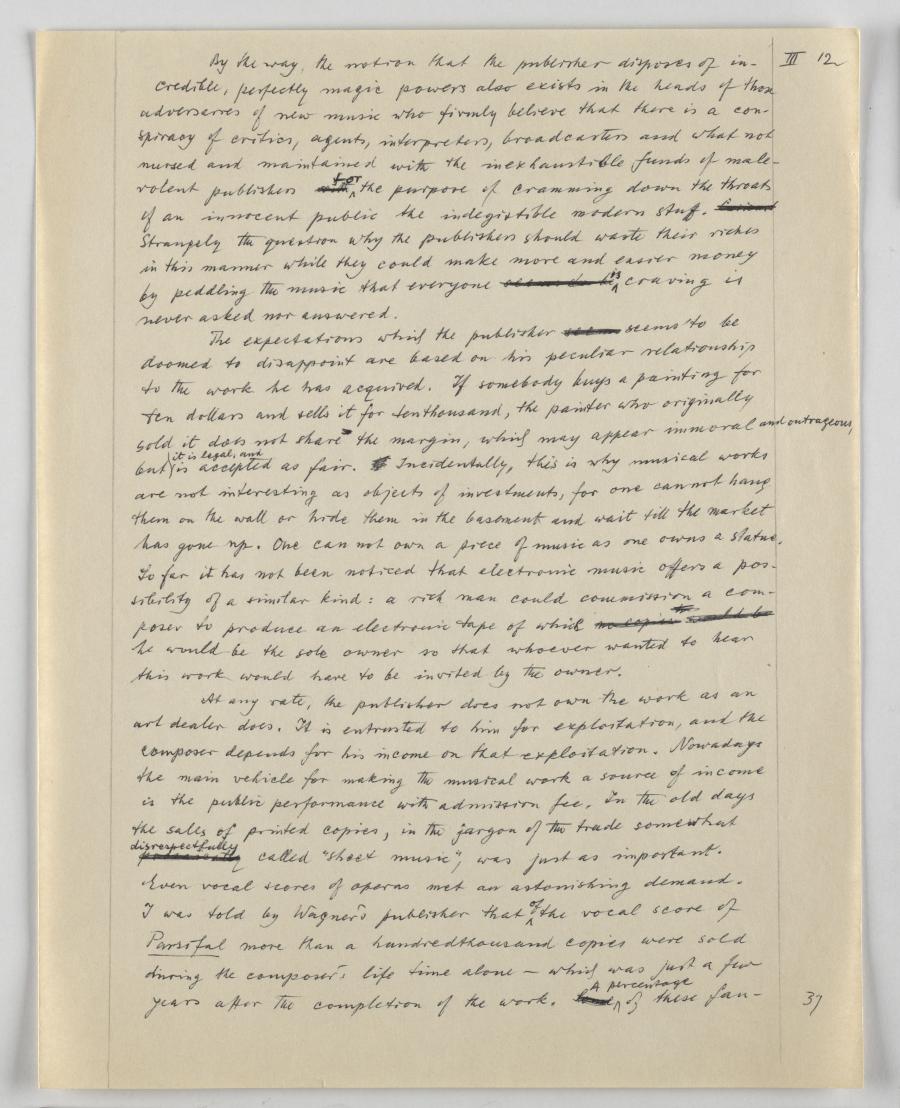 III 12
By the way, the notion that the publisher disposes of in-
credible, perfectly magic powers also exists in the heads of those
adversaries of new music who firmly believe that there is a con-
spiracy of critics, agents, interpreters, broadcasters and what not
nursed and maintained with the inexhaustible funds of male-
volent publishers for the purpose of cramming down the throats
of an innocent public the indegistible modern stuf.
Strangely the question why the publishers should waste their riches
in this manner while they could make more and easier money
by peddling the music that everyone is craving is
never asked nor answered.
The expectations which the publisher seems to be
doomed to disappoint are based on his peculiar relationship
to the work he has acquired. If somebody buys a painting for
ten dollars and sells it for tenthousand, the painter who originally
sold it does not share the margin, which may appear immoral and outrageous,
but it is legal, and is accepted as fair. Incidentally, this is why musical works
are not interesting as objects of investments, for one cannot hang
them on the wall or hide them in the basement and wait till the market
has gone up. One can not own a piece of music as one owns a statue.
So far it has not been noticed that electronic music offers a pos-
sibility of a similar kind: a rich man could commission a com-
poser to produce an electronic tape of which
he would be the sole owner so that whoever wanted to hear
this work would have to be invited by the owner.
At any rate, the publisher does not own the work as an
art dealer does. It is entrusted to him for exploitation, and the
composer depends for his income on that exploitation. Nowadays
the main vehicle for making the musical work a source of income
is the public performance with admission fee. In the old days
the sales of printed copies, in the jargon of the trade somewhat
disrespectfully called "sheet music", was just as important.
Even vocal scores of operas met an astonishing demand.
I was told by Wagner's publisher that of the vocal score of
Parsifal more than a hundredthousand copies were sold
during the composer's life time alone – which was just a few
years after the completion of the work. A percentage of these fan-
37